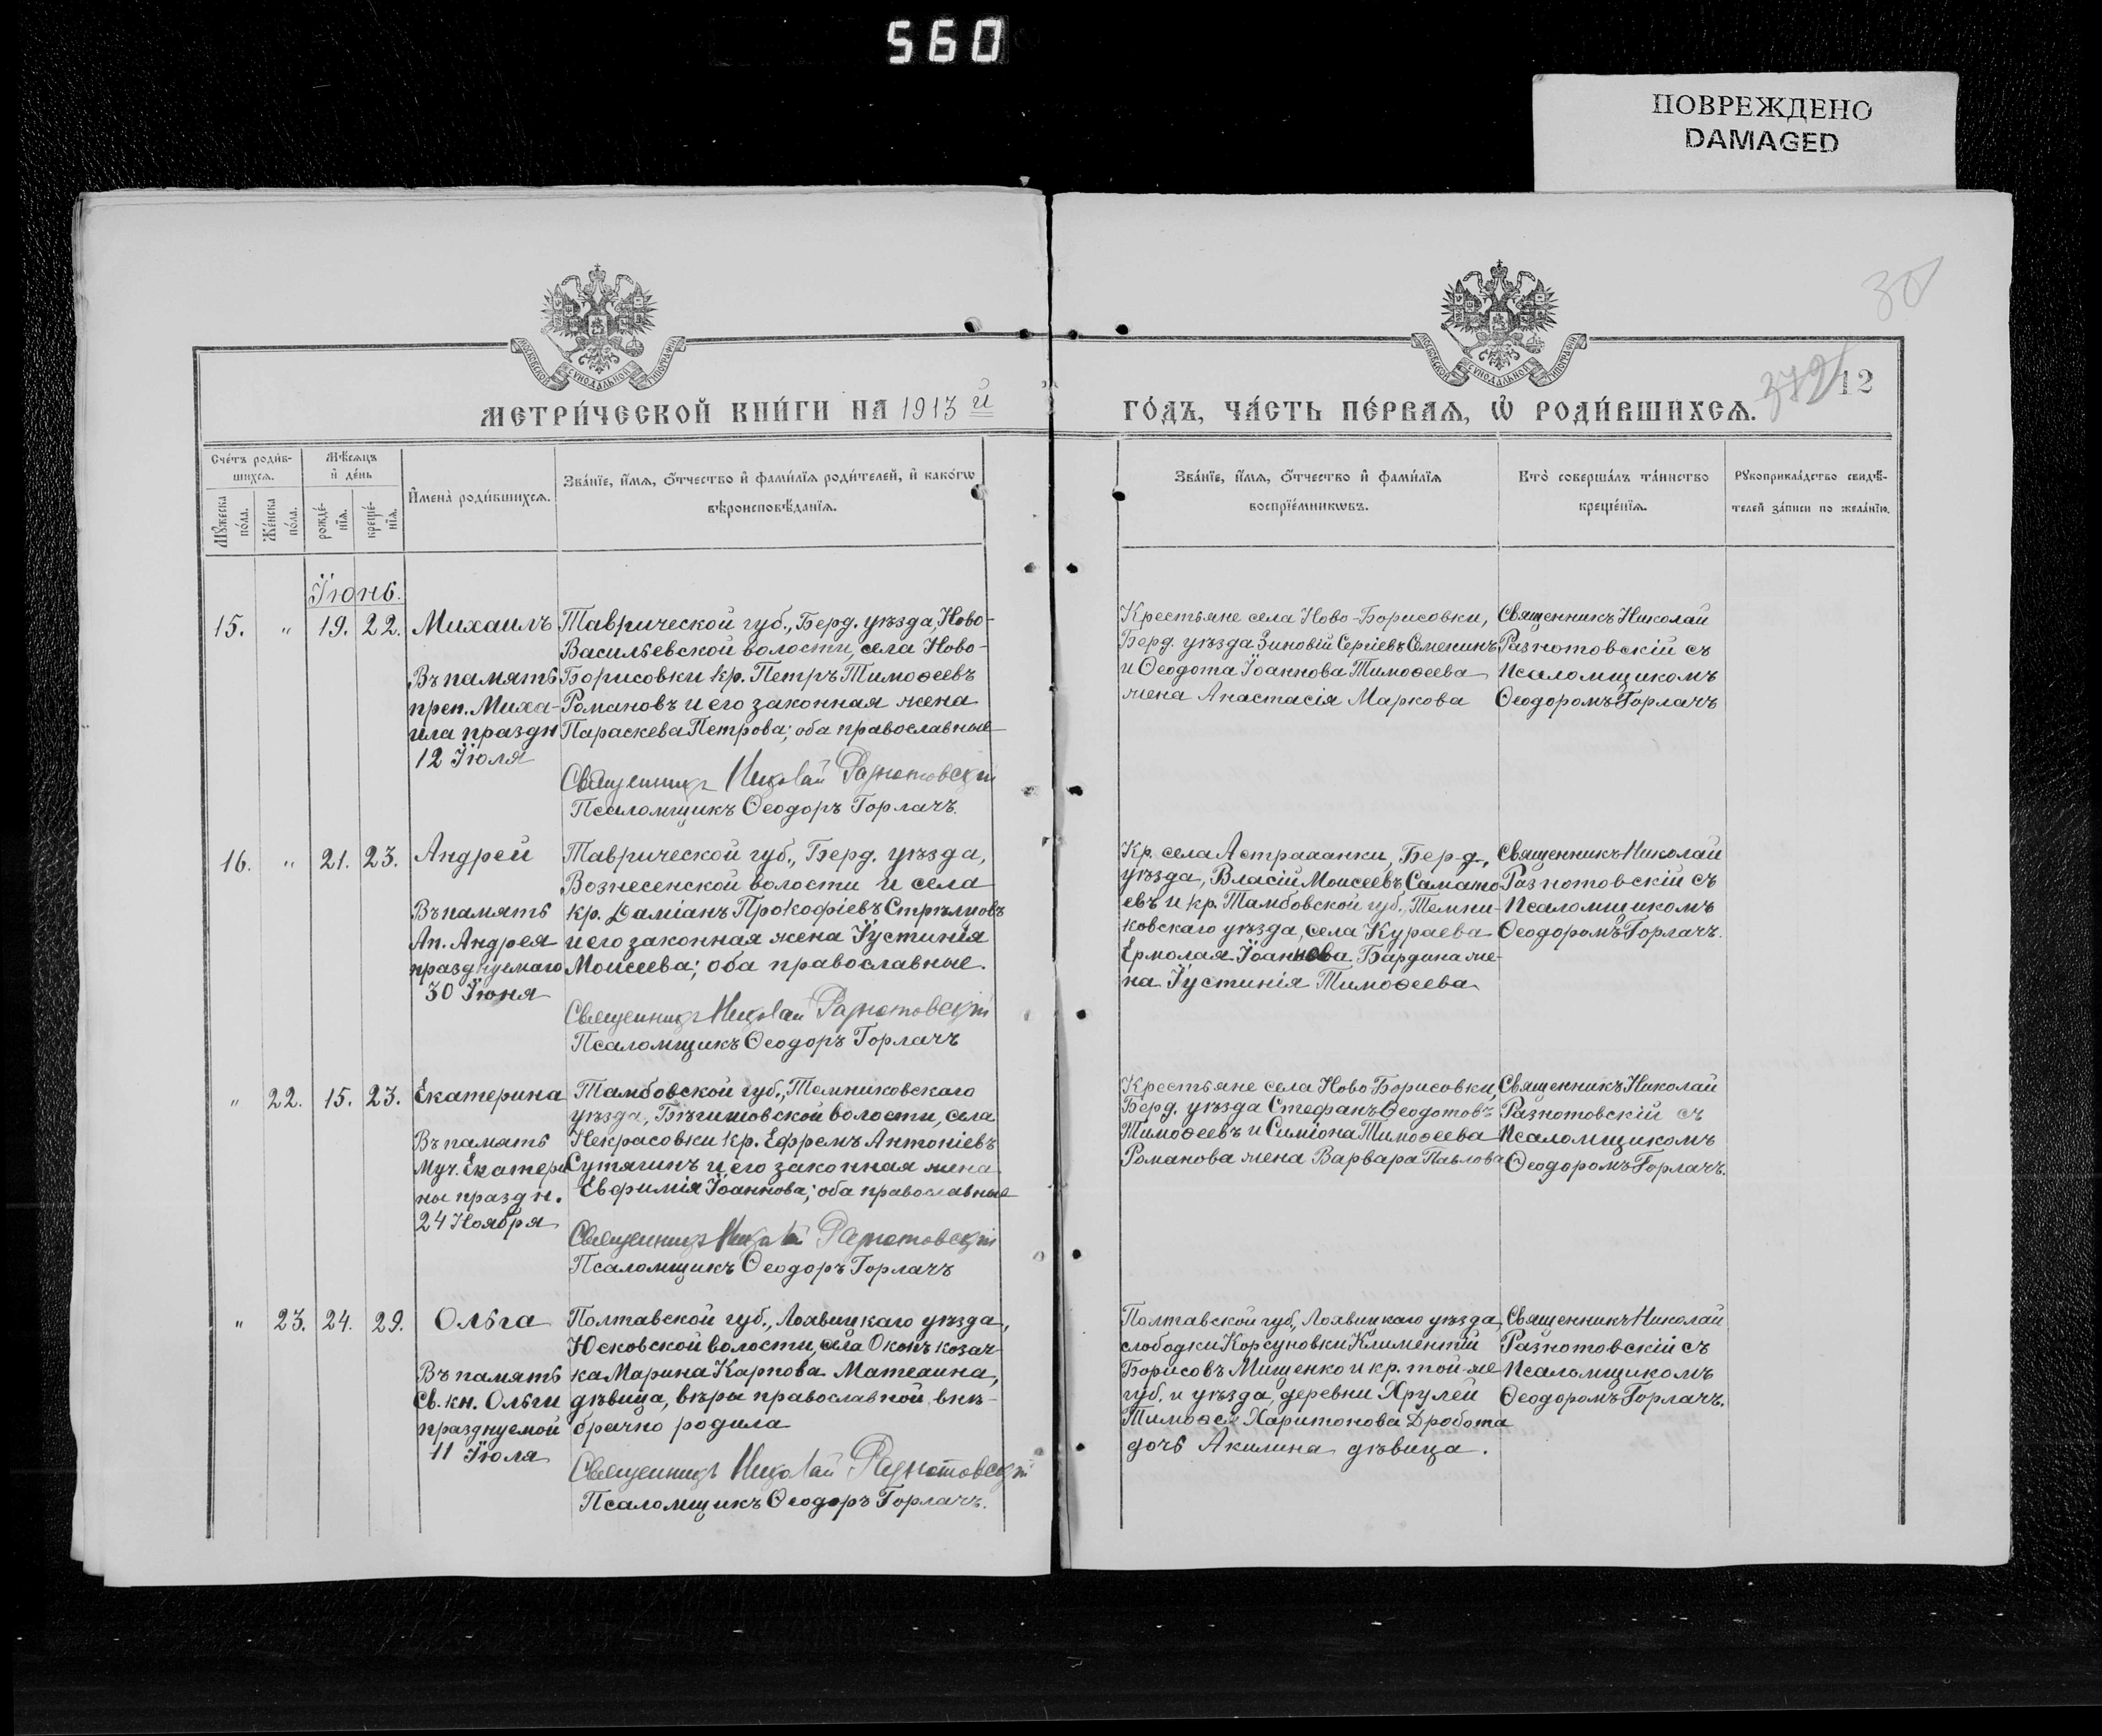 560
ПОВРЕЖДЕНО
DAMAGED
30
МОСКОВСКОЙ СѴНОДАЛЬНОЙ ТИПОГРАФІИ
МОСКОВСКОЙ СѴНОДАЛЬНОЙ ТИПОГРАФІИ
379
12
МЕТРИ́ЧЕСКОЙ КНИ́ГИ НА 1913 й
ГО́ДЪ, ЧА́СТЬ ПЕ́РВАѦ, Ѡ҆ РОДИ́ВШИХСѦ.
Сче́тъ роди́в-
шихсѧ.
Мꙋ́жеска
по́ла.
Же́нска
по́ла.
Мѣ́сѧцъ
и҆ де́нь
рожде́-
нїѧ.
креще́-
нїѧ.
И҆мена̀ роди́вшихсѧ.
Зва́нїе, и҆́мѧ, ѻ҆́тчество и҆ фами́лїѧ роди́телей, и҆ како́гѡ
вѣроисповѣ́данїѧ.
Зва́нїе, и҆́мѧ, ѻ҆́тчество и҆ фами́лїѧ
воспрїе́мникѡвъ.
Кто̀ соверша́лъ та́инство
креще́нїѧ.
Рꙋкоприкла́дство свидѣ́-
телей за́писи по жела́нїю.
Іюнь.
15. " 19. 22. Михаилъ
Въ память
преп. Миха-
ила праздн
12 Іюля
Таврической губ., Берд. уѣзда, Ново-
Васильевской волости, села Ново-
Борисовки кр. Петръ Тимоѳеевъ
Романовъ и его законная жена
Параскева Петрова; оба православные
Священникъ Николай Разнотовскій
Псаломщикъ Ѳеодоръ Горлачъ.
Крестьяне села Ново-Борисовки,
Берд. уѣзда Зиновій Сергіевъ Семенинъ
и Ѳеодота Іоаннова Тимоѳеева
жена Анастасія Маркова
Священникъ Николай
Разнотовскій съ
псаломщикомъ
Ѳеодоромъ Горлачъ
16. " 21. 23. Андрей
Въ память
Ап. Андрея
празднуемаго
30 Іюня
Таврической губ., Берд. уѣзда,
Вознесенской волости и села
кр. Даміанъ Прокофіевъ Стрѣлновъ
и его законная жена Іустинія
Моисеева; оба православные.
Священникъ Николай Разнотовскій
Псаломщикъ Ѳеодоръ Горлачъ
Кр. села Астраханки, Берд.
уѣзда, Власій Моисеевъ Самато
евъ и кр. Тамбовской губ., Темни-
ковскаго уѣзда, села Кураева
Ермолая Іоаннова Бардина же-
на Іустинія Тимоѳеева
Священникъ Николай
Разнотовскій съ
псаломщикомъ
Ѳеодоромъ Горлачъ.
" 22. 15. 23. Екатерина
Въ память
муч. Екатери
ны праздн.
24 Ноября
Тамбовской губ., Темниковскаго
уѣзда, волости, села
Некрасовки кр. Ефремъ Антоніевъ
Сутягинъ и его законная жена
Евфимія Іоаннова; оба православные
Священникъ Николай Разнотовскій
Псаломщикъ Ѳеодоръ Горлачъ
Крестьяне села Ново Борисовки,
Берд. уѣзда Стефанъ Ѳеодотовъ
Тимоѳеевъ и Симіона Тимоѳеева
Романова жена Варвара Павлова
Священникъ Николай
Разнотовскій съ
псаломщикомъ
Ѳеодоромъ Горлачъ.
" 23. 24. 29. Ольга
Въ память
Св. кн. Ольги
празднуемой
11 Іюля
Полтавской губ., Лохвицкаго уѣзда,
Юсковской волости, села Окопъ козач-
ка Марина Карпова
дѣвица, вѣры православной, внѣ-
брачно родила
Священникъ Николай Разнотовскій
Псаломщикъ Ѳеодоръ Горлачъ.
Полтавской губ., Лохвицкаго уѣзда,
слободки Корсуновки Климентій
Борисовъ Мищенко и кр. той-же
губ. и уѣзда, деревни Хрулей
Тимоѳея Харитонова Дробота
дочь Акилина дѣвица.
Священникъ Николай
Разнотовскій съ
псаломщикомъ
Ѳеодоромъ Горлачъ.